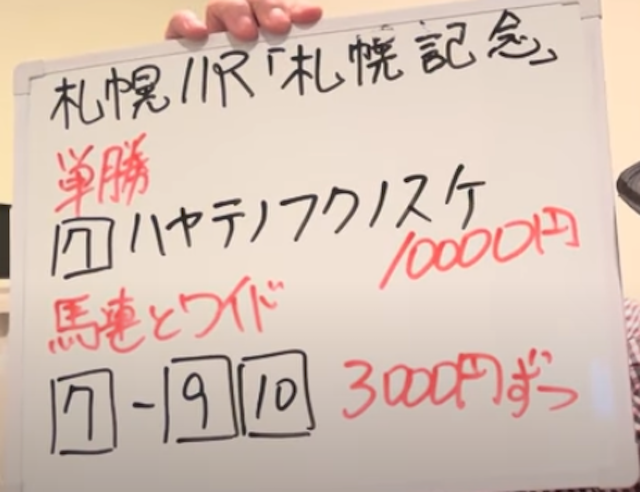 札幌11R「札幌記念」
単勝
7 ハヤテノフクノスケ
10000円
馬連とワイド
7-9 10 3000円ずつ